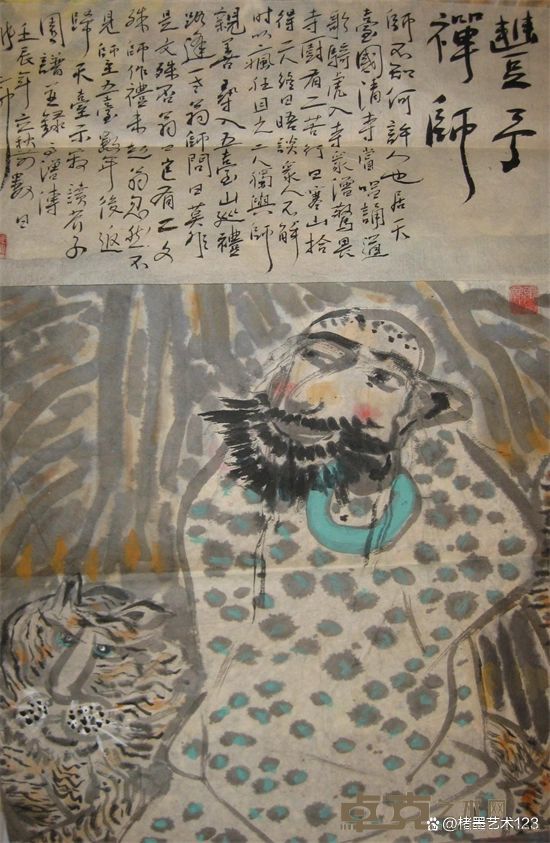 豐干
禪師
師不知何許人也居天
臺國清寺嘗唱誦道
歌騎虎入寺眾僧驚畏
寺厨有二苦行曰寒山拾
得二人終日晤談眾人不解
时以瘋狂目之二人獨與師
親善尋入五臺山巡禮
路逢一老翁師問曰莫非
是文殊否翁曰豈有二文
殊師作禮未起翁忽然不
見師 五臺數年後返
歸天臺示寂讀芥子
園譜並錄高僧傳
壬辰年立秋 數日
卓克艺术网
@楮墨艺术123